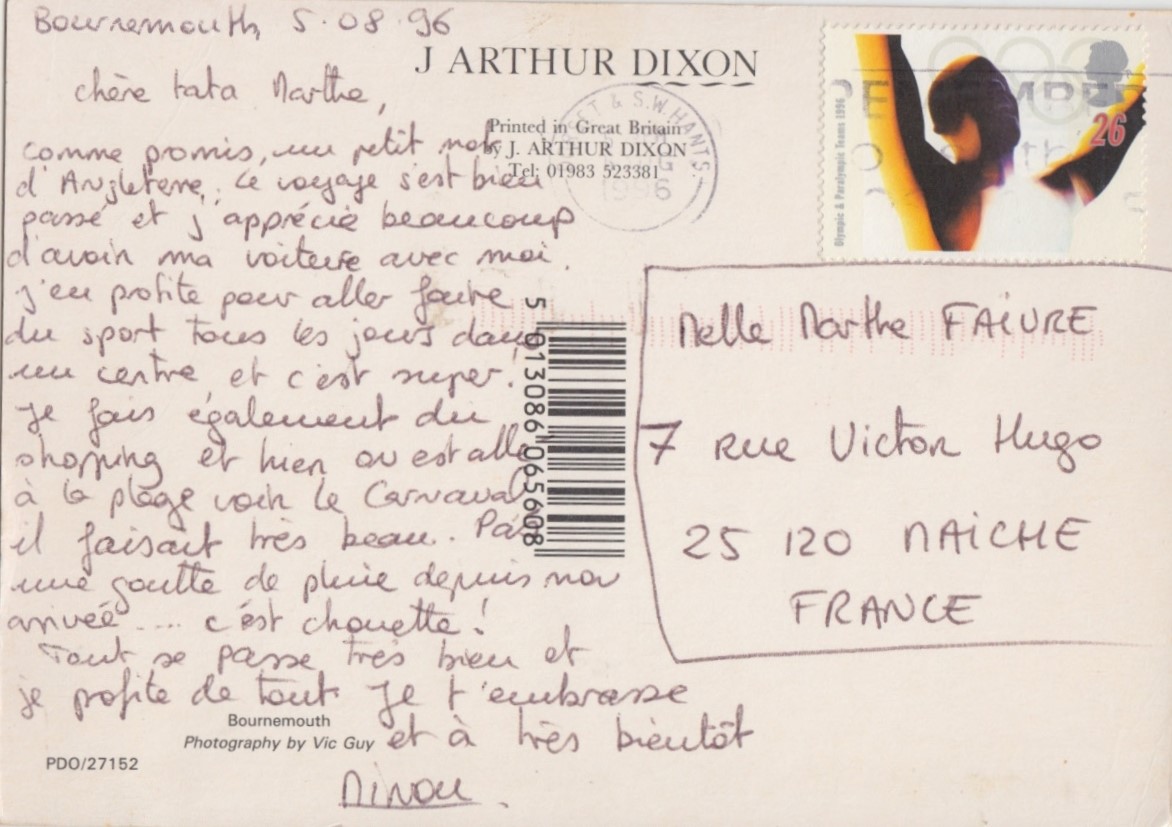 Bournemouth, 5.08.96
chère tata Marthe,
comme promis, un petit mot
d'Angleterre. Le voyage s'est bien
passé et j'apprécie beaucoup
d'avoir ma voiture avec moi.
j'en profite pour aller faire
du sport tous les jours dans
un centre et c'est super!
Je fais également du
shopping et hier on est allé
à la plage voir le Carnaval
il faisait très beau. Pas
une goutte de pluie depuis mon
arrivée .... c'est chouette!
Tout se passe très bien et
je profite de tout. Je t'embrasse
et à très bientôt
Ninou.
J ARTHUR DIXON
Printed in Great Britain
by J. ARTHUR DIXON
Tel: 01983 523381
DORSET & S.W. HANTS.
1996
Olympic & Paralympic Teams 1996
26
5 013086 065608
Melle Marthe FAIVRE
7 rue Victor Hugo
25 120 MAICHE
FRANCE
Bournemouth
Photography by Vic Guy
PDO/27152